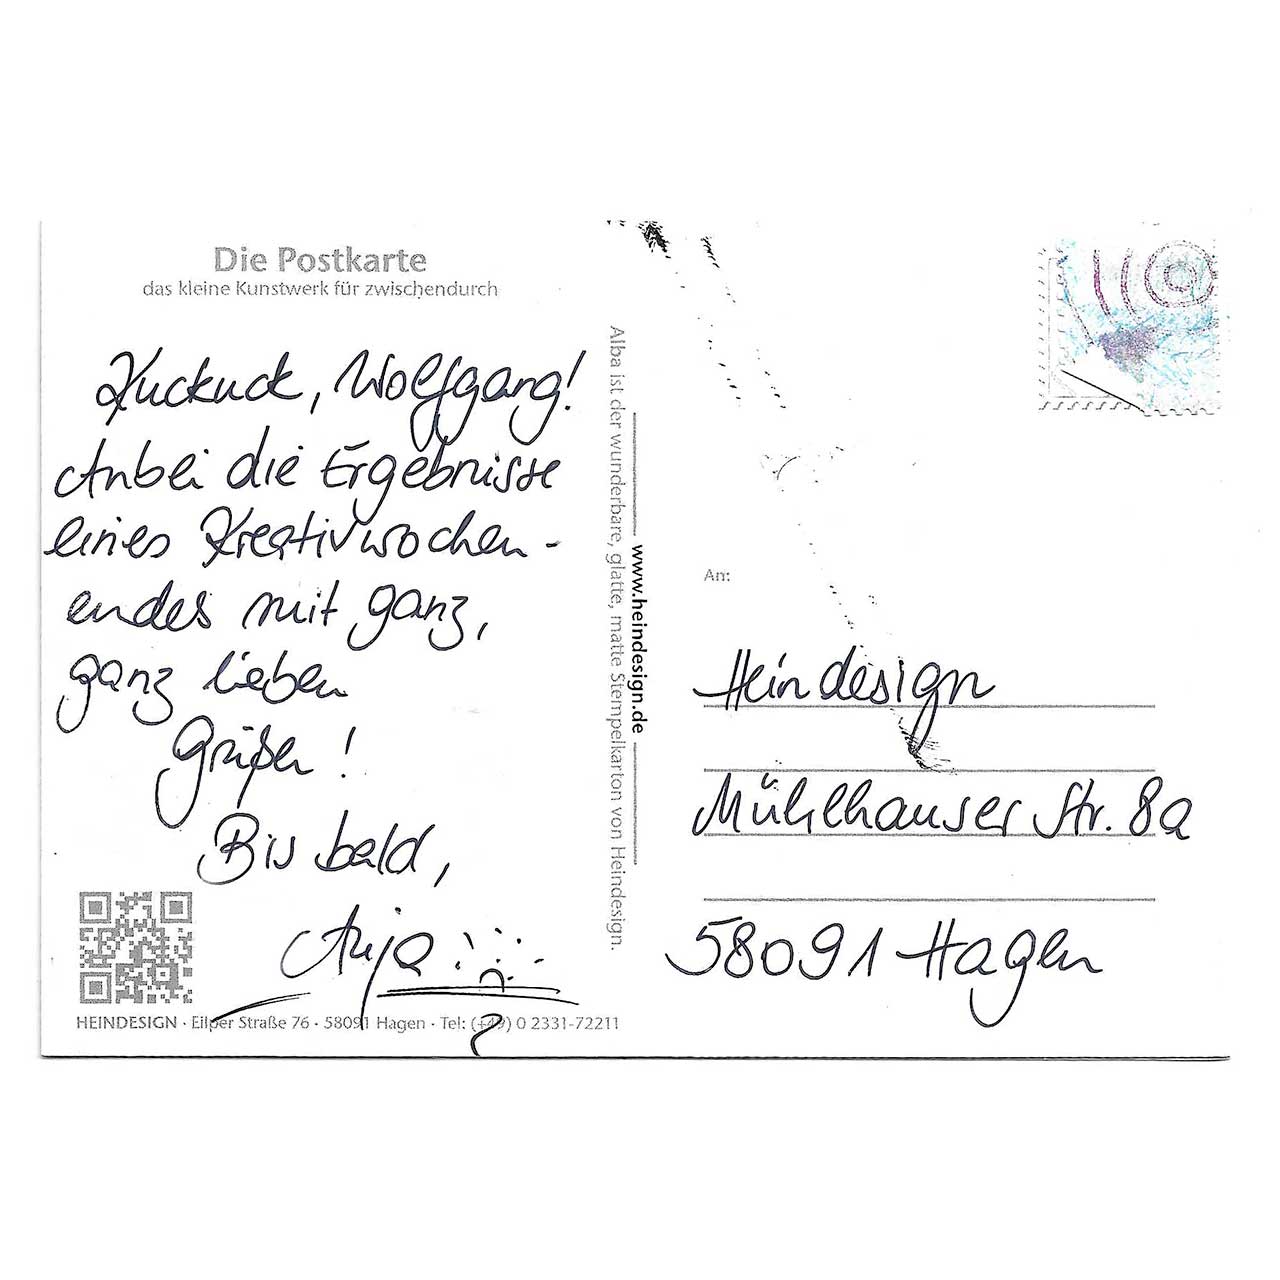 Die Postkarte
das kleine Kunstwerk für zwischendurch
Kuckuck, Wolfgang!
Anbei die Ergebnisse
eines Kreativwochen-
endes mit ganz,
ganz lieben
Grüßen!
Bis bald,
Anja
HEINDESIGN · Eilper Straße 76 · 58091 Hagen · Tel: (+49) 0 2331-72211
www.heindesign.de
Alba ist der wunderbare, glatte, matte Stempelkarton von Heindesign.
An:
Heindesign
Mühlhauser Str. 8a
58091 Hagen